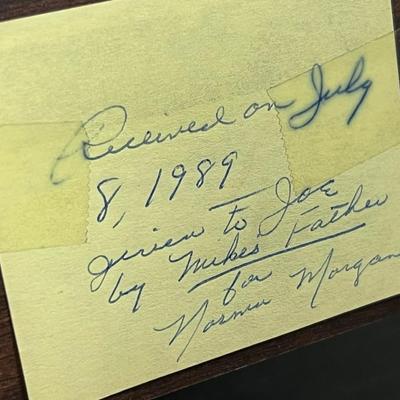 Received on July
8, 1989
given to Joe
by Mikes' Father
for
Norma Morgan